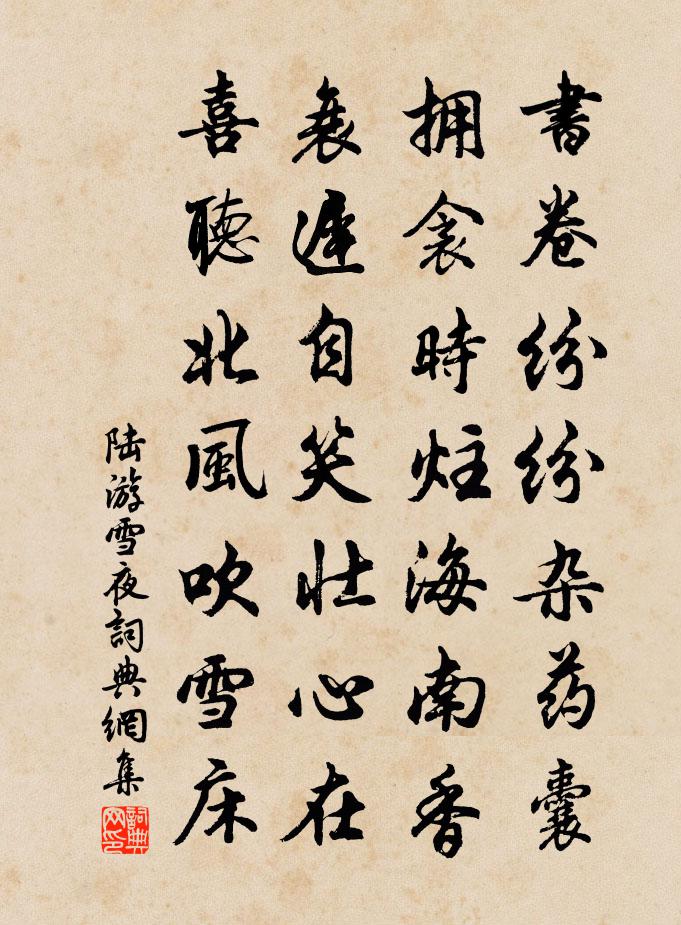 書卷纷纷杂药囊
拥衾時炷海南香
衰遲自笑壮心在
喜聽北風吹雪床
陆游雪夜詞典網集
詞典网印